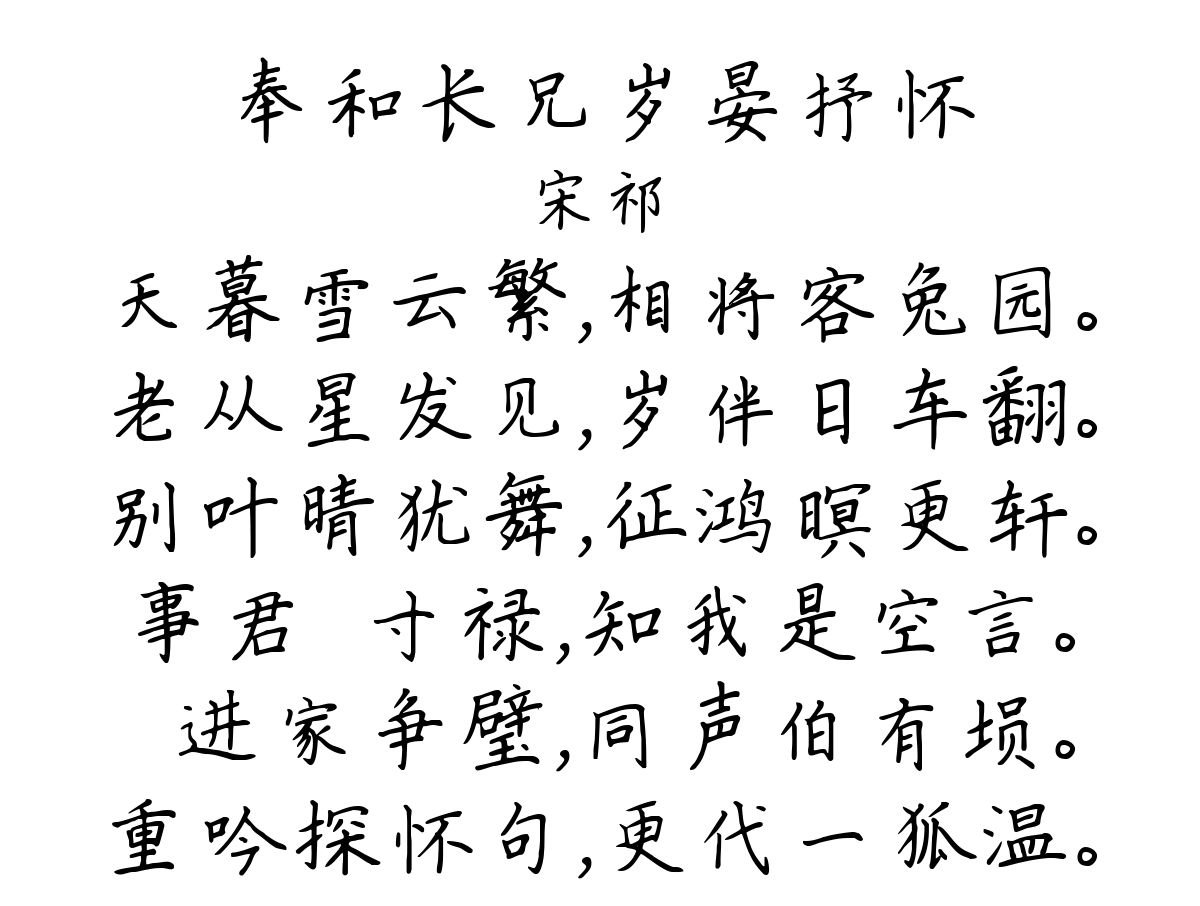 奉和长兄岁晏抒怀
宋祁
天暮雪云繁,相将客兔园。
老从星发见,岁伴日车翻。
别叶晴犹舞,征鸿暝更轩。
事君 寸禄,知我是空言。
进家争璧,同声伯有埙。
重吟探怀句,更代一狐温。